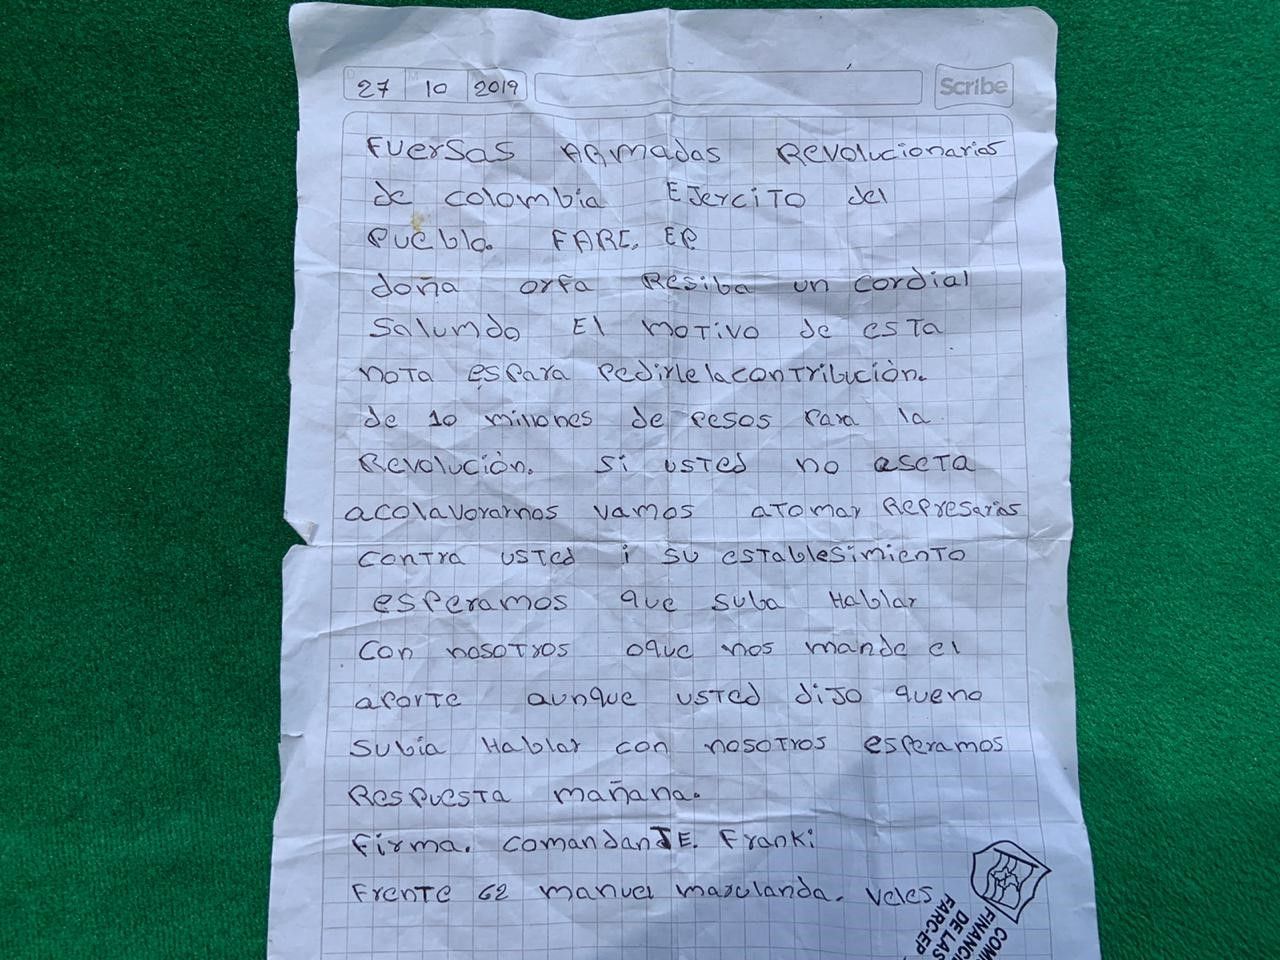 D M
27 10 2019
Scribe
Fuersas Armadas Revolucionarias
de colombia Ejercito del
Pueblo. FARC. EP
doña orfa Resiba un cordial
Salundo El motivo de esta
nota espara Pedirle la contribución.
de 10 millones de pesos para la
Revolución. Si usted no aseta
acolavorarnos vamos atomar Represarias
contra usted i su establesimiento
esperamos que suba Hablar
con nosotros oque nos mande el
aporte aunque usted dijo queno
subia Hablar con nosotros esperamos
Respuesta mañana.
Firma. comandanTE. Franki
Frente 62 manuel marulanda. Veles
COMI
FINANCI
DE LAS
FARC-EP